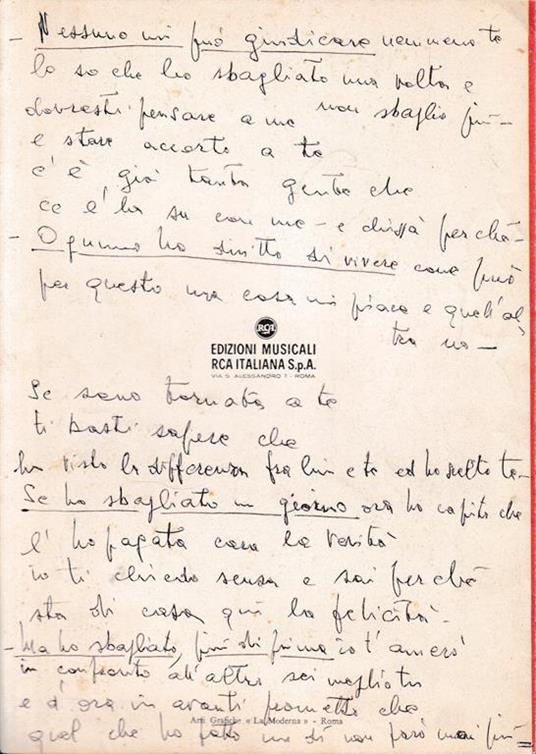 - Nessuno mi può giudicare nemmeno tu
lo so che ho sbagliato una volta e
non sbaglio più -
dovresti pensare a me
e stare accorto a te
c'è già tanta gente che
ce l'ha su con me - e chissà perchè -
- Ognuno ha diritto di vivere come può
per questo una cosa mi piace e quell'al
tra no -
RCA
EDIZIONI MUSICALI
RCA ITALIANA S.p.A.
VIA S. ALESSANDRO 7 - ROMA
Se sono tornata a te
ti basti sapere che
ho visto la differenza fra lui e te ed ho scelto te -
Se ho sbagliato un giorno ora ho capito che
l'ho pagata cara la verità
io ti chiedo scusa e sai perchè
sta di casa qui la felicità -
- Ma ho sbagliato, più di prima io t'amerò
in confronto all'altro sei meglio tu
e d'ora in avanti prometto che
Arti Grafiche « La Moderna » - Roma
quel che ho fatto un dì non farò mai più =